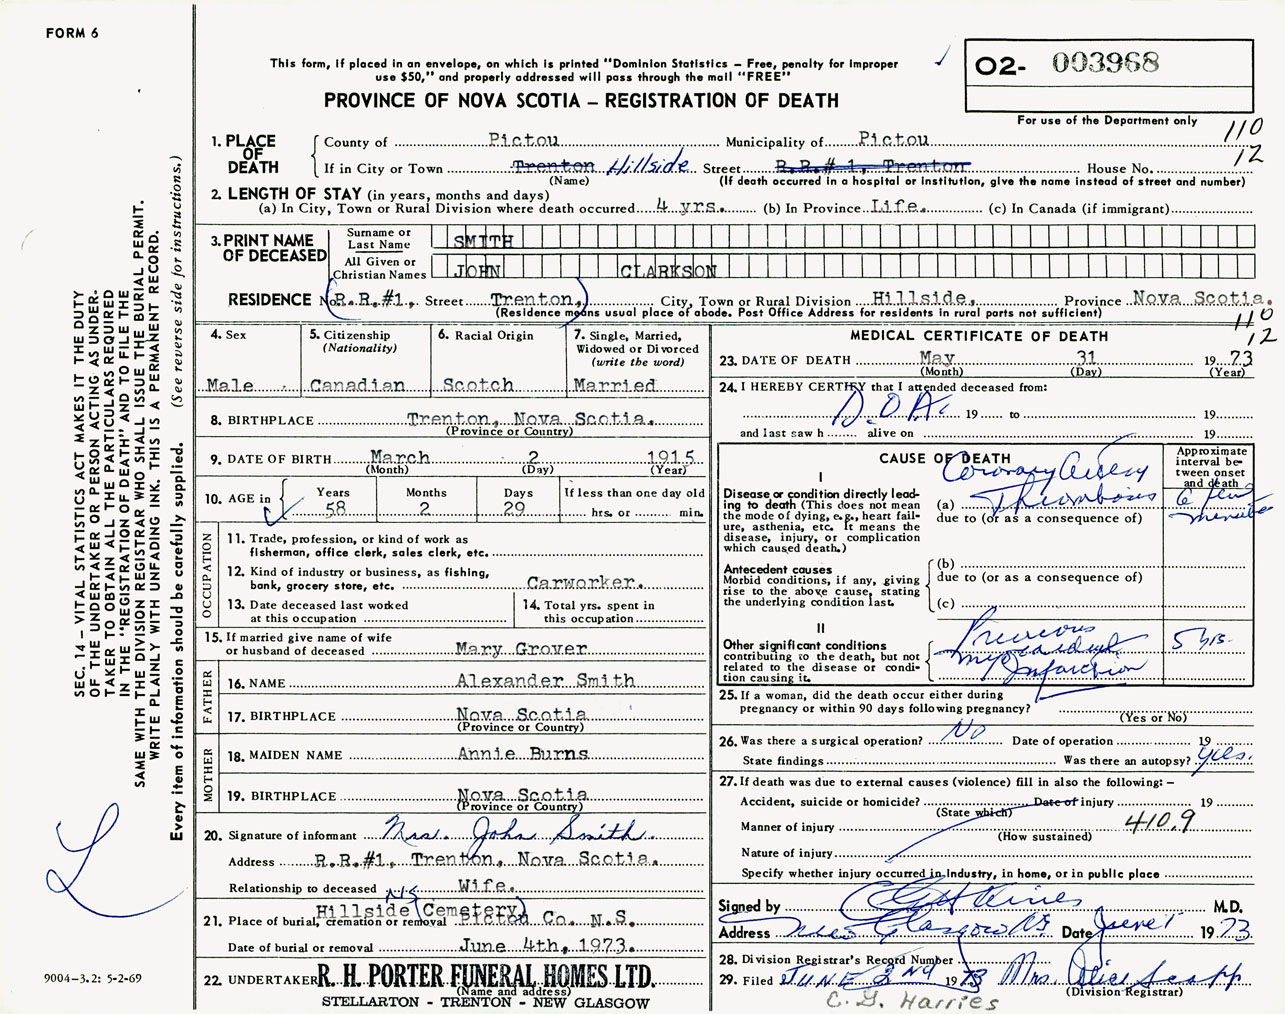 FORM 6
This form, if placed in an envelope, on which is printed "Dominion Statistics – Free, penalty for improper
use $50," and properly addressed will pass through the mail "FREE"
PROVINCE OF NOVA SCOTIA – REGISTRATION OF DEATH
02- 003968
For use of the Department only
110
12
1. PLACE OF DEATH
County of Pictou Municipality of Pictou
If in City or Town Trenton Hillside Street R.R.#1, Trenton House No.
(Name) (If death occurred in a hospital or institution, give the name instead of street and number)
2. LENGTH OF STAY (in years, months and days)
(a) In City, Town or Rural Division where death occurred 4 yrs. (b) In Province Life. (c) In Canada (if immigrant)
3. PRINT NAME OF DECEASED
Surname or Last Name SMITH
All Given or Christian Names JOHN CLARKSON
RESIDENCE No. R.R.#1, Street Trenton, City, Town or Rural Division Hillside, Province Nova Scotia.
(Residence means usual place of abode. Post Office Address for residents in rural parts not sufficient)
110
12
4. Sex
Male
5. Citizenship
(Nationality)
Canadian
6. Racial Origin
Scotch
7. Single, Married,
Widowed or Divorced
(write the word)
Married
8. BIRTHPLACE Trenton, Nova Scotia.
(Province or Country)
9. DATE OF BIRTH March 2 1915
(Month) (Day) (Year)
10. AGE in
Years Months Days If less than one day old
58 2 29 hrs. or min.
OCCUPATION
11. Trade, profession, or kind of work as
fisherman, office clerk, sales clerk, etc.
12. Kind of industry or business, as fishing,
bank, grocery store, etc. Carworker.
13. Date deceased last worked
at this occupation
14. Total yrs. spent in
this occupation
15. If married give name of wife
or husband of deceased Mary Grover
FATHER
16. NAME Alexander Smith
17. BIRTHPLACE Nova Scotia
(Province or Country)
MOTHER
18. MAIDEN NAME Annie Burns
19. BIRTHPLACE Nova Scotia
(Province or Country)
20. Signature of informant Mrs. John Smith.
Address R.R.#1, Trenton, Nova Scotia.
Relationship to deceased Wife.
N/S
Hillside (Cemetery)
21. Place of burial, cremation or removal Pictou Co. N.S.
Date of burial or removal June 4th, 1973.
22. UNDERTAKER R. H. PORTER FUNERAL HOMES LTD.
(Name and address)
STELLARTON - TRENTON - NEW GLASGOW
MEDICAL CERTIFICATE OF DEATH
23. DATE OF DEATH May 31 1973
(Month) (Day) (Year)
24. I HEREBY CERTIFY that I attended deceased from:
D.O.A. 19 to 19
and last saw h alive on 19
CAUSE OF DEATH
Approximate
interval be-
tween onset
and death
I
Disease or condition directly lead-
ing to death (This does not mean
the mode of dying, e.g., heart fail-
ure, asthenia, etc. It means the
disease, injury, or complication
which caused death.)
Coronary Artery
(a) Thrombosis
due to (or as a consequence of)
a few
minutes
Antecedent causes
Morbid conditions, if any, giving
rise to the above cause, stating
the underlying condition last.
(b)
due to (or as a consequence of)
(c)
II
Other significant conditions
contributing to the death, but not
related to the disease or condi-
tion causing it.
Previous
myocardial
Infarction
5 yrs.
25. If a woman, did the death occur either during
pregnancy or within 90 days following pregnancy?
(Yes or No)
26. Was there a surgical operation? No Date of operation 19
State findings Was there an autopsy? Yes.
27. If death was due to external causes (violence) fill in also the following: –
Accident, suicide or homicide? Date of injury 19
(State which)
Manner of injury 410.9
(How sustained)
Nature of injury
Specify whether injury occurred in Industry, in home, or in public place
Signed by M.D.
Address New Glasgow NS Date June 1 1973
28. Division Registrar's Record Number
29. Filed JUNE 2nd 1973 Mrs. Alice Scapp
(Division Registrar)
C. G. Harries
SEC. 14 – VITAL STATISTICS ACT MAKES IT THE DUTY
OF THE UNDERTAKER OR PERSON ACTING AS UNDER-
TAKER TO OBTAIN ALL THE PARTICULARS REQUIRED
IN THE "REGISTRATION OF DEATH" AND TO FILE THE
SAME WITH THE DIVISION REGISTRAR WHO SHALL ISSUE THE BURIAL PERMIT.
WRITE PLAINLY WITH UNFADING INK. THIS IS A PERMANENT RECORD.
Every item of information should be carefully supplied. (See reverse side for instructions.)
9004-3.2: 5-2-69